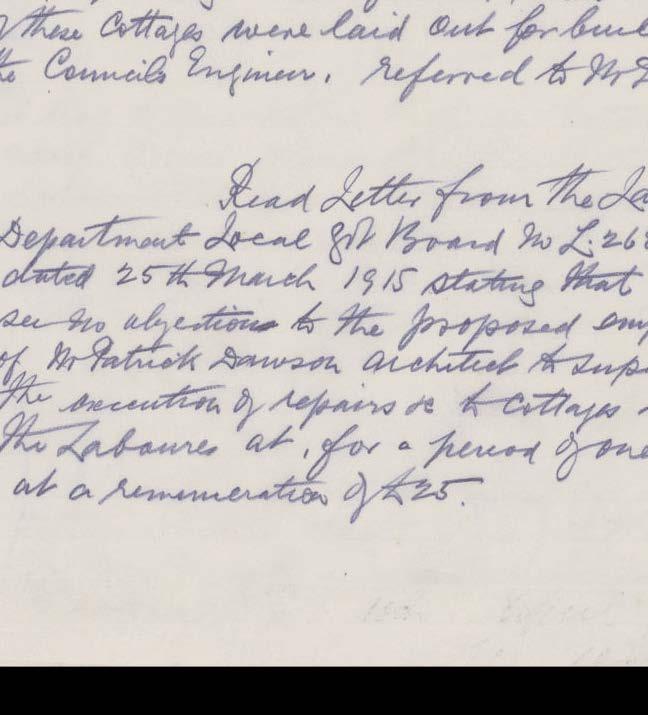 these Cottages were laid out for buil
the Councils Engineer. referred to Mr D
Read Letter from the La
Department Local Gvt Board No L. 268
dated 25th March 1915 stating that
see no objections to the proposed emp
of Mr Patrick Dawson Architect to supe
the execution of repairs &c to Cottages
the Laboures at, for a period of one
at a remuneration of £25.